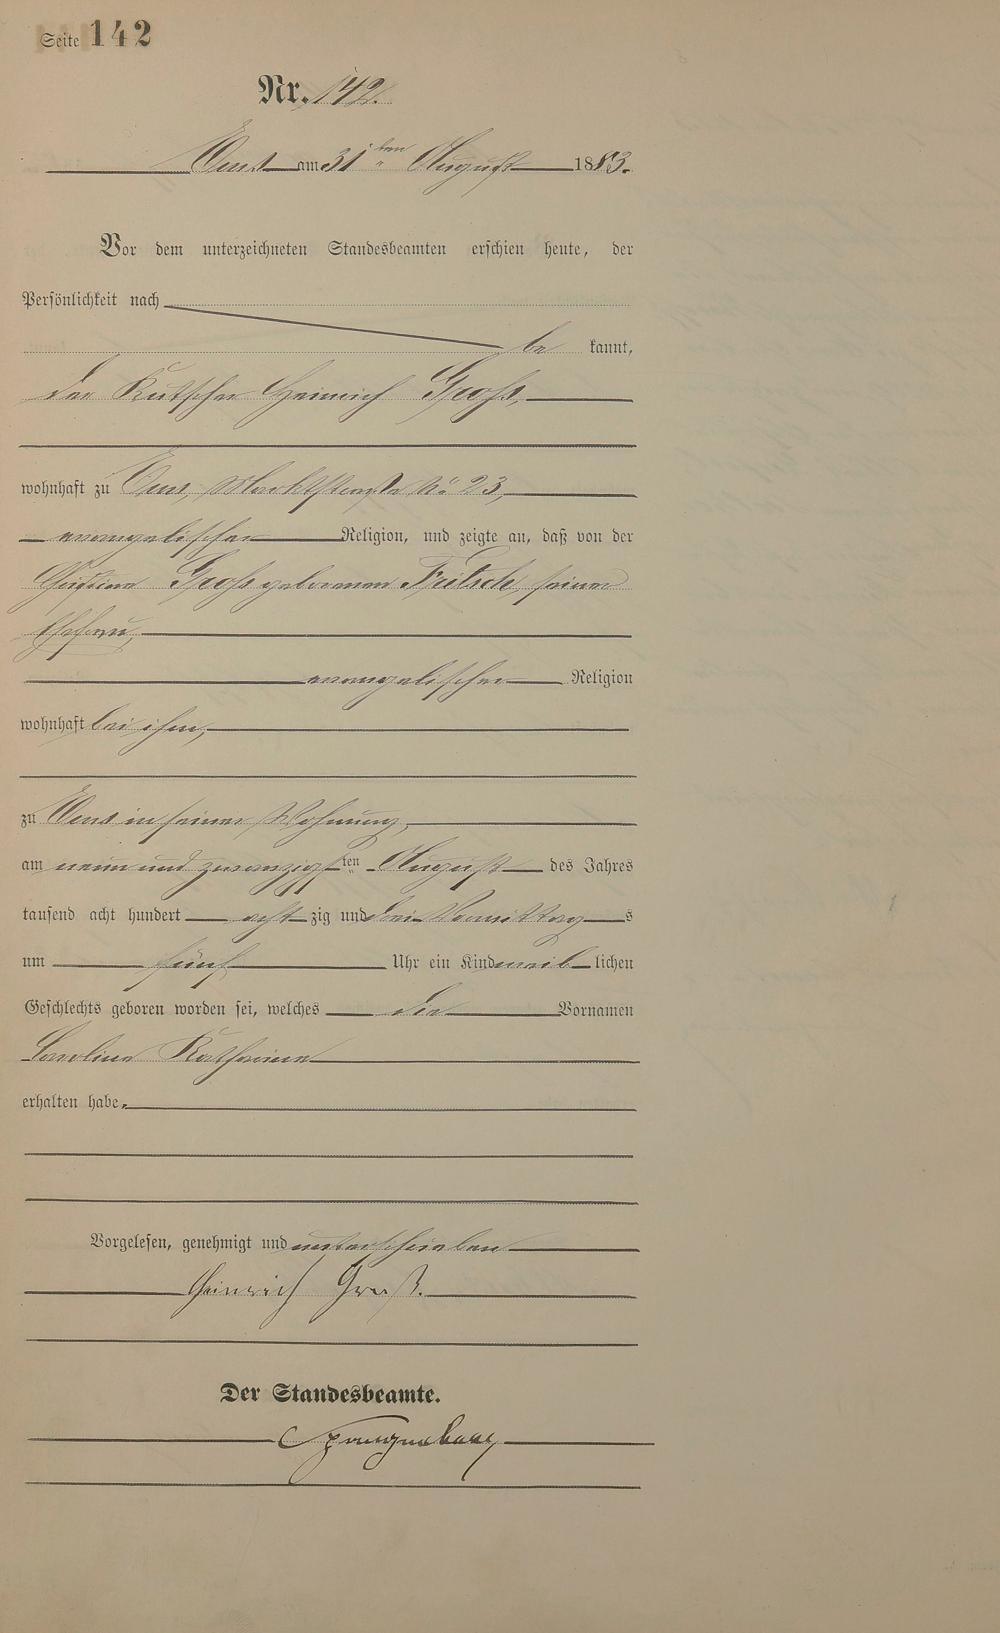 Seite 142
Nr. 142.
Ems am 31ten August 1883.
Vor dem unterzeichneten Standesbeamten erschien heute, der
Persönlichkeit nach
be kannt,
der Kutscher Heinrich Groß,
wohnhaft zu Ems, Marktstraße No 23,
evangelischer Religion, und zeigte an, daß von der
Groß geborenen Fritsch, seiner
Ehefrau,
evangelischer Religion
wohnhaft bei ihm,
zu Ems in seiner Wohnung,
am neun und zwanzigsten August des Jahres
tausend acht hundert acht zig und drei Vormittag s
um fünf Uhr ein Kind weib lichen
Geschlechts geboren worden sei, welches die Vornamen
Caroline Katharine
erhalten habe.
Vorgelesen, genehmigt und unterschrieben
Heinrich Groß.
Der Standesbeamte.
Spangenberg